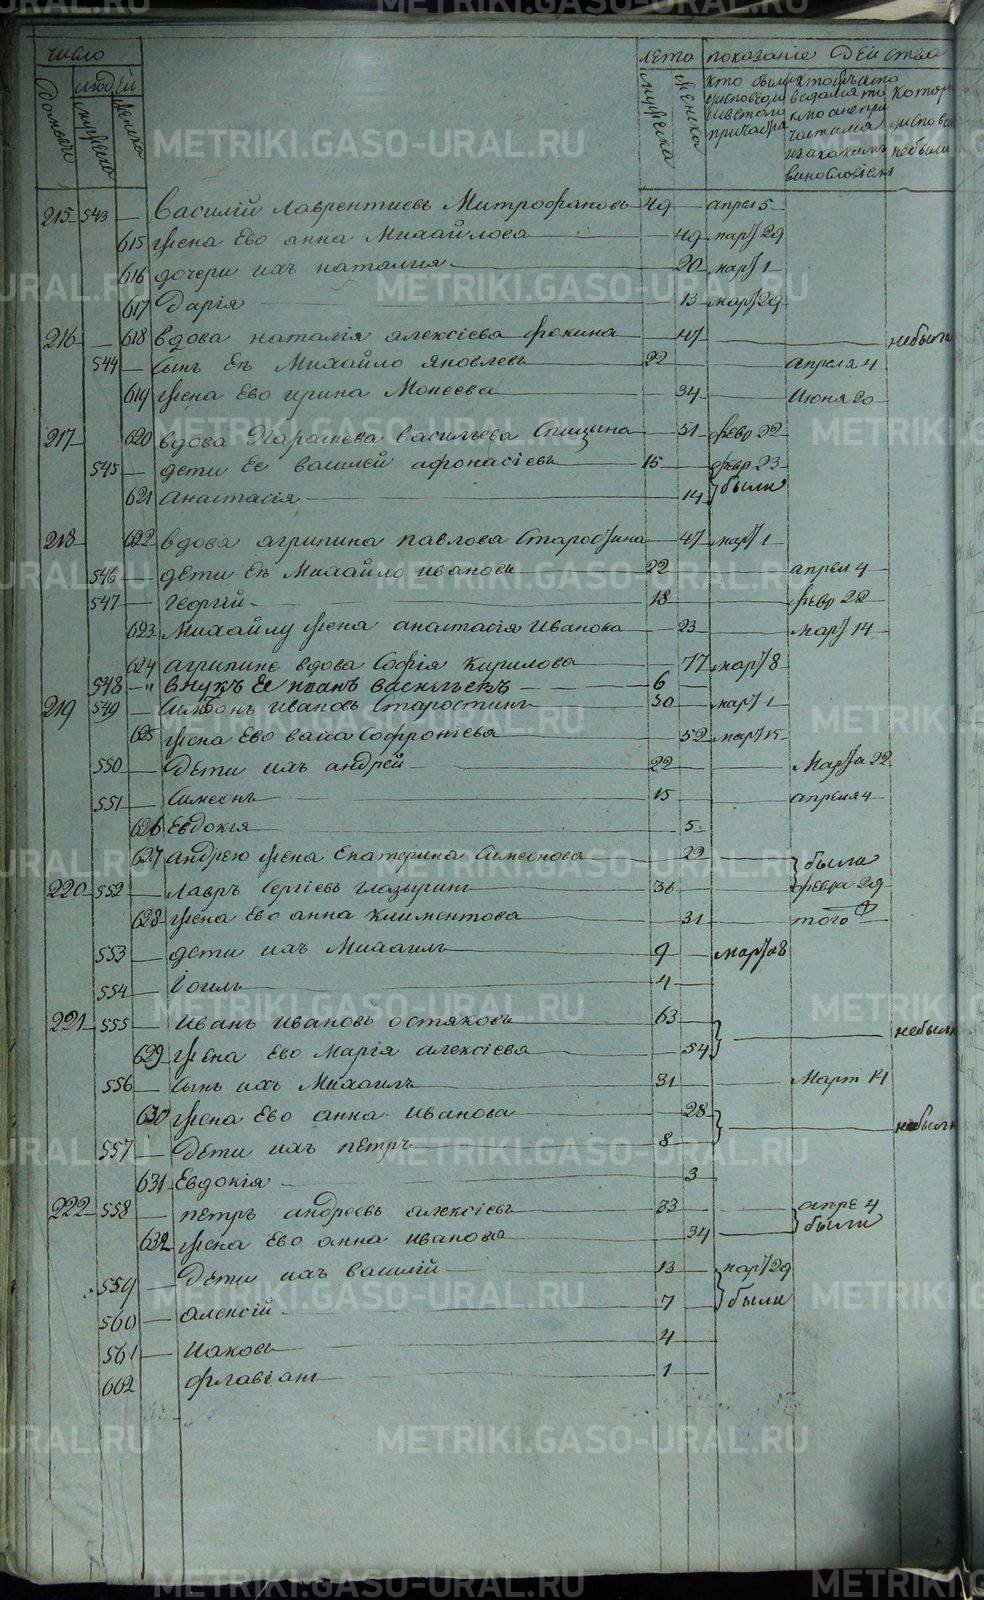 число
лета показаніе действа
домовъ
людей
мужеска
женска
мужеска
женска
кто были
исповеди
причас
винословіемъ
небыли
215 543 Василій Лаврентиевъ Митрофановъ 49 апрел 5
615 жена Ево анна Михайлова 49 март 29
616 дочери ихъ наталия 20 март 1
617 Дарія 13 март 29
216 618 вдова наталія алексіева фокина 47 небыла
544 сынъ Еѣ Михайло Яковлевъ 22 апреля 4
619 жена Ево ирина Моисеева 34 Июня 20
217 620 вдова васильева Спицина 51 февр 22
545 дети Ее василей афонасіевъ 15 февр 23
621 анастасія 14 были
218 622 вдова агрипина павлова Старостина 47 март 1
546 дети Еѣ Михайло ивановъ 22 апрел 4
547 георгій 18 февр 22
623 Михайлу жена анастасія Иванова 23 март 14
624 агрипине вдова Софія кирилова 77 март 8
548 внукъ Ее иванъ васильевъ 6
219 549 Симеонъ ивановъ Старостинъ 50 март 1
625 жена Ево васа Софроніева 52 март 15
550 Дети ихъ андрей 22 Марта 22
551 Симеонъ 15 апреля 4
626 Евдокія 5
627 андрею жена Екатерина Симеонова 22 были
220 552 Лавръ Сергіевъ глазыринъ 36 февра 29
628 жена Ево анна климентова 31 того
553 дети ихъ Михаилъ 9 марта 8
554 Іоилъ 4
221 555 Иванъ ивановъ остяковъ 63 небыли
629 жена Ево Марія алексіева 54
556 сынъ ихъ Михаилъ 31 Март 14
630 жена Ево анна иванова 28 небыли
557 Дети ихъ петръ 8
631 Евдокія 3
222 558 петръ андреевъ алексіевъ 33 апре 4
632 жена Ево анна иванова 34 были
559 Дети ихъ василій 13 март 29
560 алексій 7 были
561 иаковъ 4
662 флавіанъ 1
METRIKI.GASO-URAL.RU